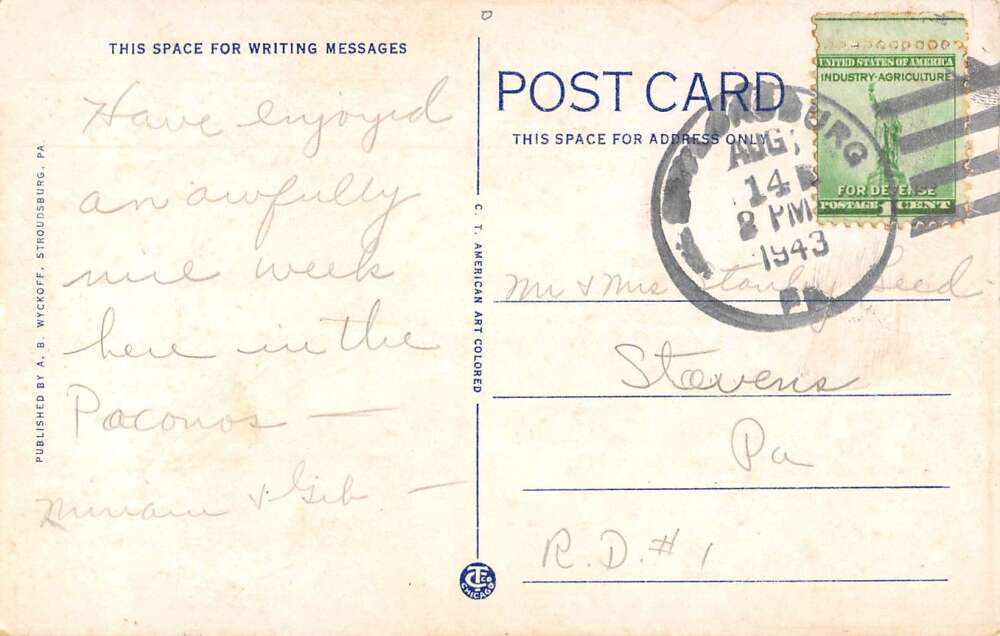 THIS SPACE FOR WRITING MESSAGES
Have enjoyed
an awfully
nice week
here in the
Poconos —
Miriam & Gib —
PUBLISHED BY A. B. WYCKOFF, STROUDSBURG, PA.
C. T. AMERICAN ART COLORED
POST CARD
THIS SPACE FOR ADDRESS ONLY
UNITED STATES OF AMERICA
INDUSTRY·AGRICULTURE
FOR DEFENSE
POSTAGE 1 CENT
STROUDSBURG
AUG
14
8 PM
1943
PA
Mr & Mrs Stanley
Stevens
Pa
R.D. #1
CTC
CHICAGO